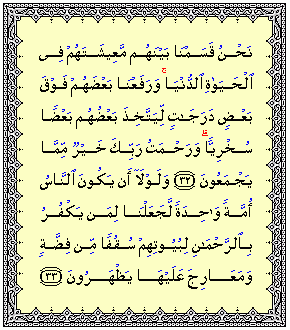 نَحْنُ قَسَمْنَا بَيْنَهُم مَّعِيشَتَهُمْ فِى
ٱلْحَيَوٰةِ ٱلدُّنْيَا ۚ وَرَفَعْنَا بَعْضَهُمْ فَوْقَ
بَعْضٍ دَرَجَٰتٍ لِّيَتَّخِذَ بَعْضُهُم بَعْضًا
سُخْرِيًّا ۗ وَرَحْمَتُ رَبِّكَ خَيْرٌ مِّمَّا
يَجْمَعُونَ ﴿٣٢﴾ وَلَوْلَآ أَن يَكُونَ ٱلنَّاسُ
أُمَّةً وَٰحِدَةً لَّجَعَلْنَا لِمَن يَكْفُرُ
بِٱلرَّحْمَٰنِ لِبُيُوتِهِمْ سُقُفًا مِّن فِضَّةٍ
وَمَعَارِجَ عَلَيْهَا يَظْهَرُونَ ﴿٣٣﴾